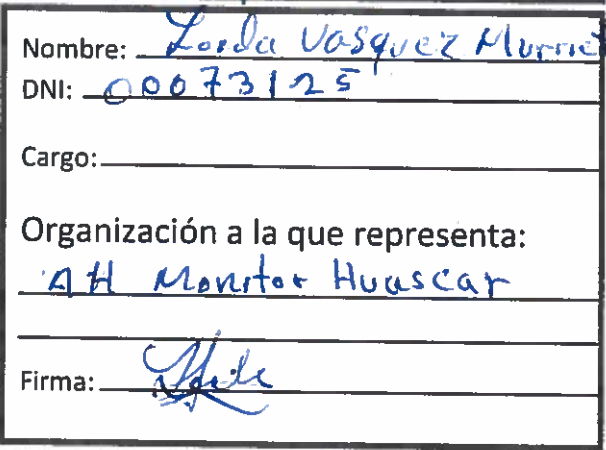 Nombre: Lorda Vasquez Murrie
DNI: 00073125
Cargo:
Organización a la que representa:
AH Monitor Huascar
Firma: